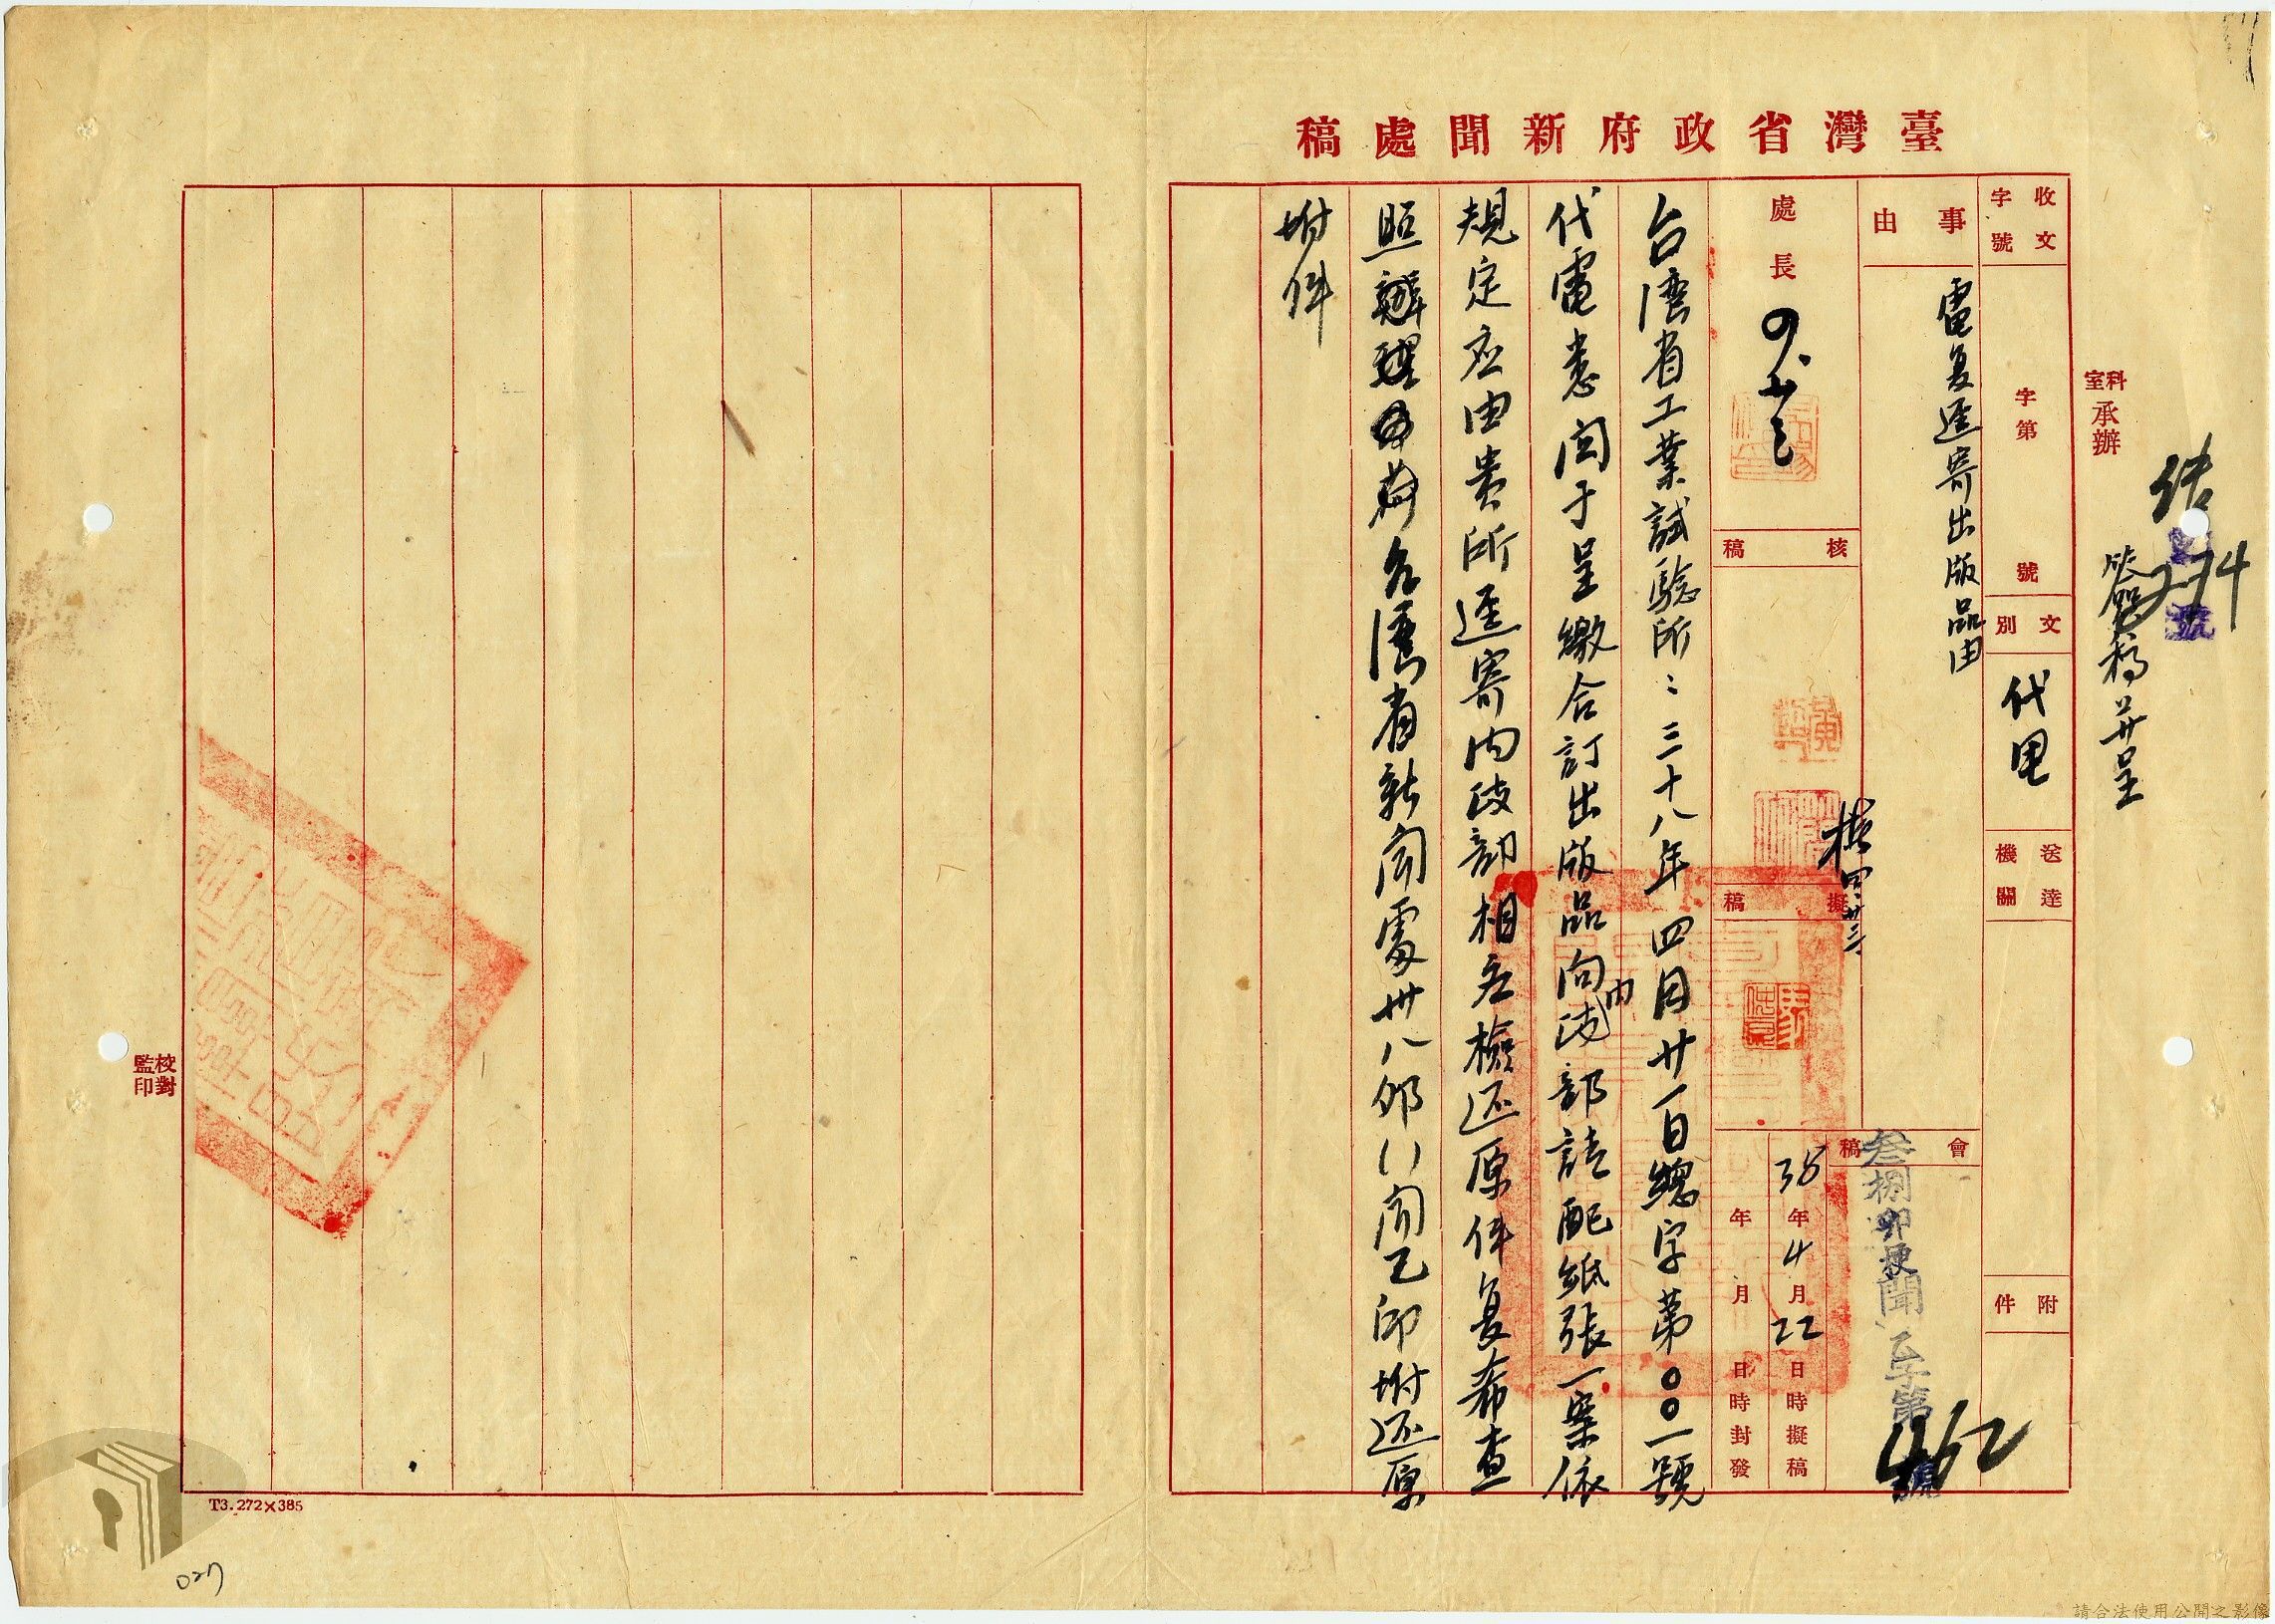 臺灣省政府新聞處稿
科室承辦
簽稿并呈
274
號
收文字號
字第
號
文別
代電
送達機關
附件
事由
電复逕寄出版品由
會稿
叁捌卯梗聞乙字第462號
處長
核稿
擬稿
38年4月22日時擬稿
年月日時封發
台灣省工業試驗所：三十八年四月廿一日總字第〇〇一號
代電悉関于呈繳合訂出版品向內政部請配紙張一案依
規定应由貴所逕寄內政部相应檢还原件复希查
照辦理為荷台灣省新闻處卅八卯（）闻乙印附还原
附件
校對
監印
T3.272×385
027
請合法使用公開之影像